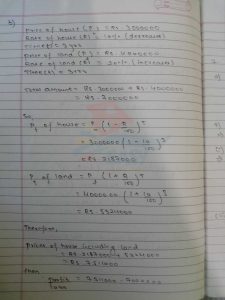 b)
Price of house (P₁) = Rs. 3000000
Rate of house (R) = 10% (decrease)
Time (T) = 3 yrs
Price of land (P₂) = Rs. 4000000
Rate of land (R) = 10% (increase)
Time (T) = 3 yrs
Total amount = Rs 3000000 + Rs 4000000
= Rs 7000000
So,
P_T of house = P (1 - R/100)^T
= 3000000 (1 - 10/100)^3
= Rs 2187000
P_T of land = P (1 + R/100)^T
= 4000000 (1 + 10/100)^3
= Rs 5324000
Therefore,
Prices of house including land
= Rs 2187000 + 5324000
= Rs 7511000
then
7511000 - 7000000